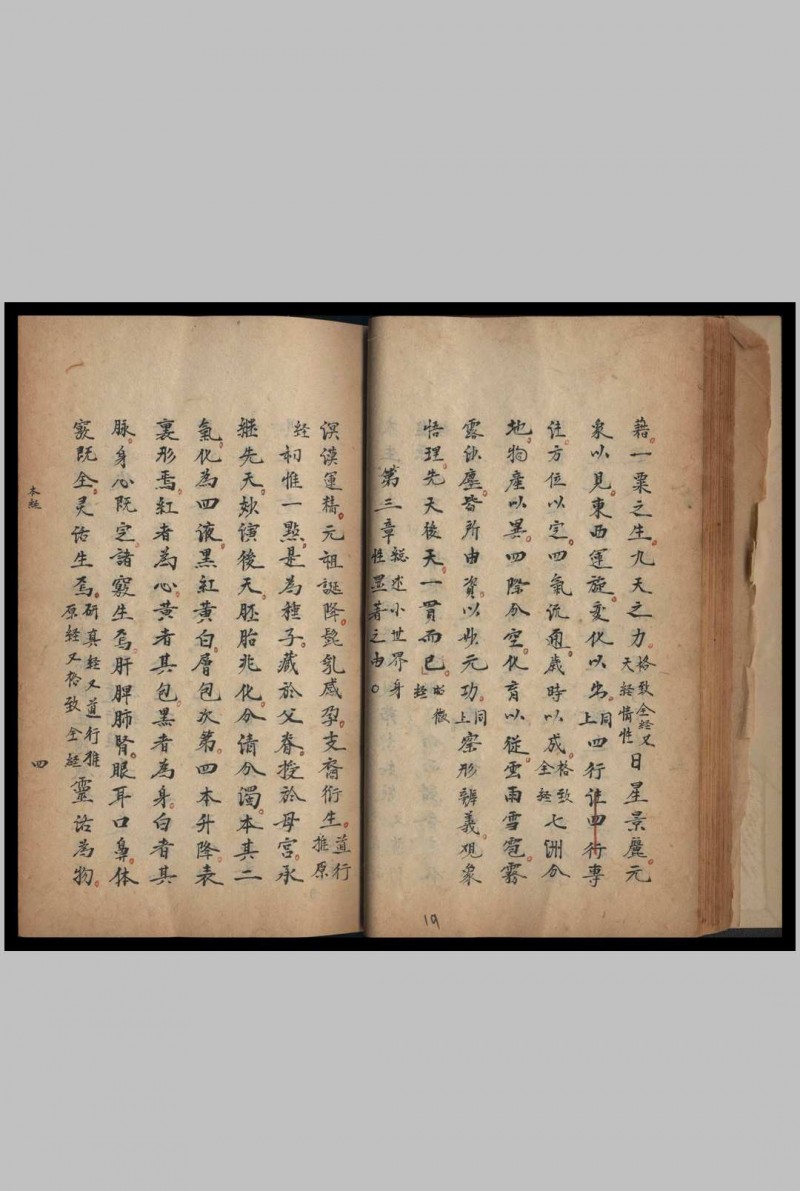 藉。一粟之生。九天之力。格致全經又天經情性日星景麗。元
象以見。東西運旋。变化以出。同上四行誰四行專
注方位以定。四氣流通。歲時以成。格致全經七洲分
地。物產以異。四際分空。化育以從。雲雨雪雹。霧
露沙塵。皆所由資。以妙元功。同上察形辨義。观象
悟理。先天後天。一貫而已。昭微經
第三章 總述小世界身性显著之由。
19
溟漠運精。元祖誕降。髭乳感孕。支裔衍生。道行推原
經初惟一點。是為種子。藏於父脊。授於母宮。承
継先天。妙演後天。胚胎兆化。分清分濁。本其二
氣。化為四液。黑紅黃白。層包次第。四本升降。表
裏形焉。紅者為心。黃者其包。黑者為身。白者其
脉。身心既定。諸竅生焉。肝脾肺腎。眼耳口鼻。体
竅既全。灵活生焉。研真經又道行推原經又格致全經靈活為物。
本経
四